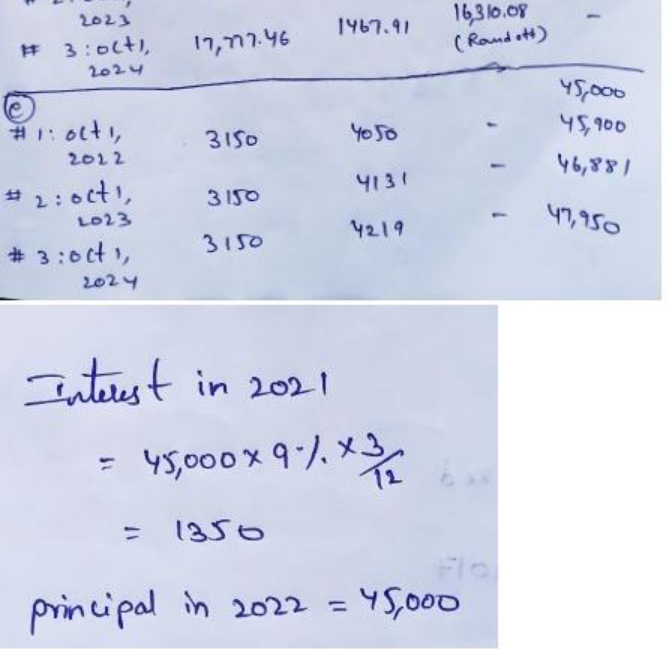 2023
# 3 : oct 1, 17,777.46 1467.91 16,310.08 -
2024 (Round off)
45,000
(e)
# 1 : oct 1, 3150 4050 - 45,900
2022
# 2 : oct 1, 3150 4131 - 46,881
2023
# 3 : oct 1, 3150 4219 - 47,950
2024
Interest in 2021
= 45,000 x 9 % x 3/12
= 1350
principal in 2022 = 45,000